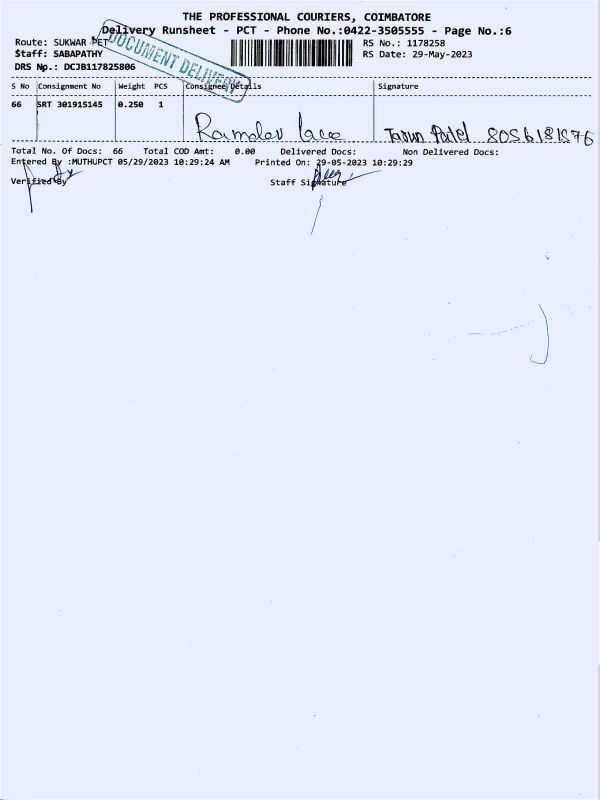 THE PROFESSIONAL COURIERS, COIMBATORE
Delivery Runsheet - PCT - Phone No.:0422-3505555 - Page No.:6
Route: SUKWAR PET
RS No.: 1178258
Staff: SABAPATHY
RS Date: 29-May-2023
DRS No.: DCJB117825806
DOCUMENT DELIVERY
S No Consignment No Weight PCS Consignee Details Signature
66 SRT 301915145 0.250 1
Ramdev lace Tarun Patel
Total No. Of Docs: 66 Total COD Amt: 0.00 Delivered Docs: Non Delivered Docs:
Entered By :MUTHUPCT 05/29/2023 10:29:24 AM Printed On: 29-05-2023 10:29:29
Verified By Staff Signature